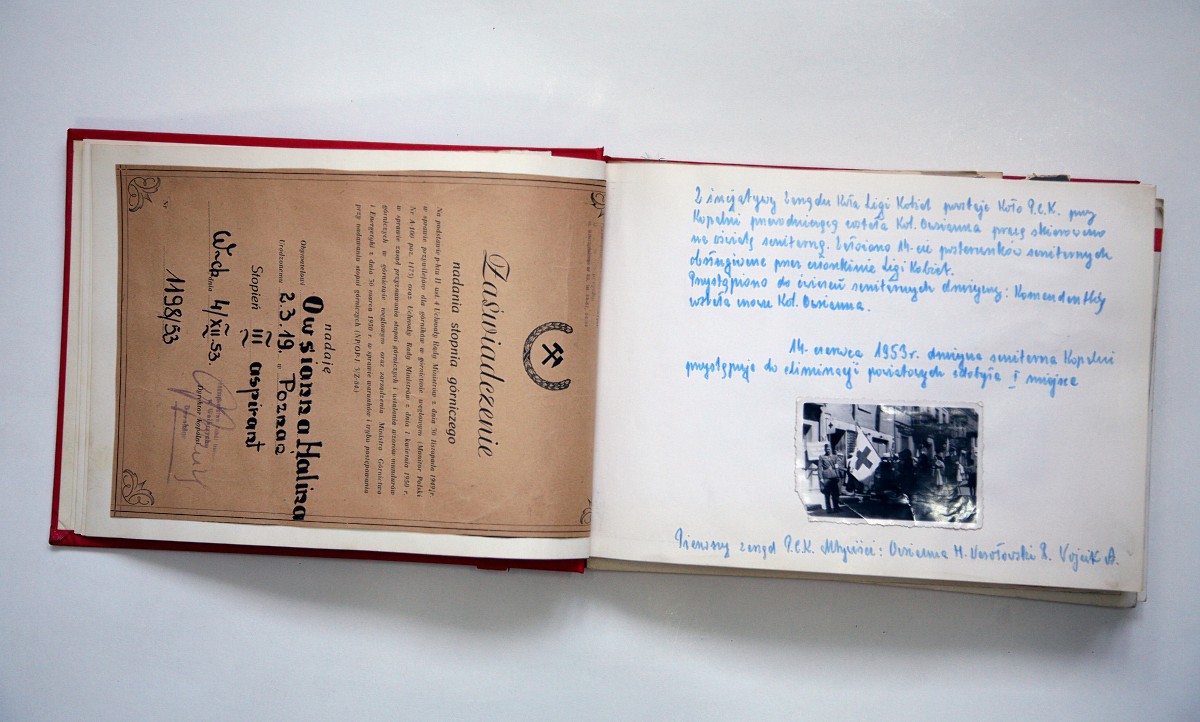 Zaświadczenie
nadania stopnia górniczego
Na podstawie p-ktu II ust. 4 Uchwały Rady Ministrów z dnia 30 listopada 1949 r.
w sprawie przywilejów dla górników w górnictwie węglowym (Monitor Polski
Nr A-100 poz. 1175) oraz Uchwały Rady Ministrów z dnia 1 kwietnia 1950 r.
w sprawie zasad przyznawania stopni górniczych i ustalania wzorów mundurów
górniczych w górnictwie węglowym oraz zarządzenia Ministra Górnictwa
i Energetyki z dnia 30 marca 1950 r. w sprawie warunków i trybu postępowania
przy nadawaniu stopni górniczych
nadaję
Obywatelowi Owsianna Halina
Urodzonemu 2.3.19. w Poznac
Stopień III aspirant
W-ch dnia 4/XII 53.
Dyrektor Kopalni
Nr 1198/53
Z inicjatywy Zarządu Koła Ligi Kobiet powstaje Koło P.C.K. przy
Kopalni przewodniczącą została Kol. Owsianna przez skierowano
na oświatę sanitarną. Założono 14-cie posterunków sanitarnych
obsługiwane przez członkinie Ligi Kobiet.
Przystąpiono do ćwiczeń sanitarnych drużyny: Komendantką
została znowu Kol. Owsianna.
14. czerwca 1953 r. drużyna sanitarna Kopalni
przystępuje do eliminacji powiatowych zdobyła I miejsce
Pierwszy zarząd P.C.K. Owsianna H. Wesołowski R. Wojcik A.